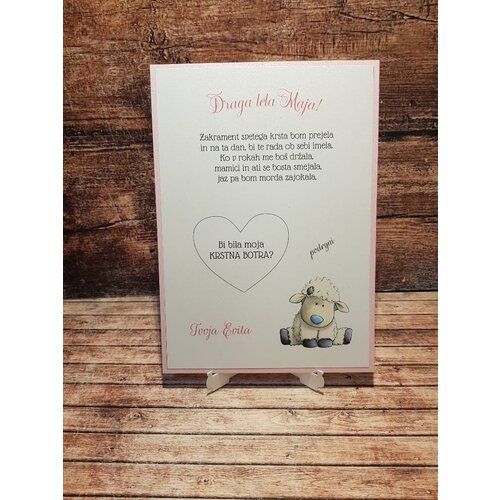 Draga teta Maja!
Zakrament svetega krsta bom prejela
in na ta dan, bi te rada ob sebi imela.
Ko v rokah me boš držala,
mamici in ati se bosta smejala,
jaz pa bom morda zajokala.
Bi bila moja
KRSTNA BOTRA?
podrgni
Tvoja Evita